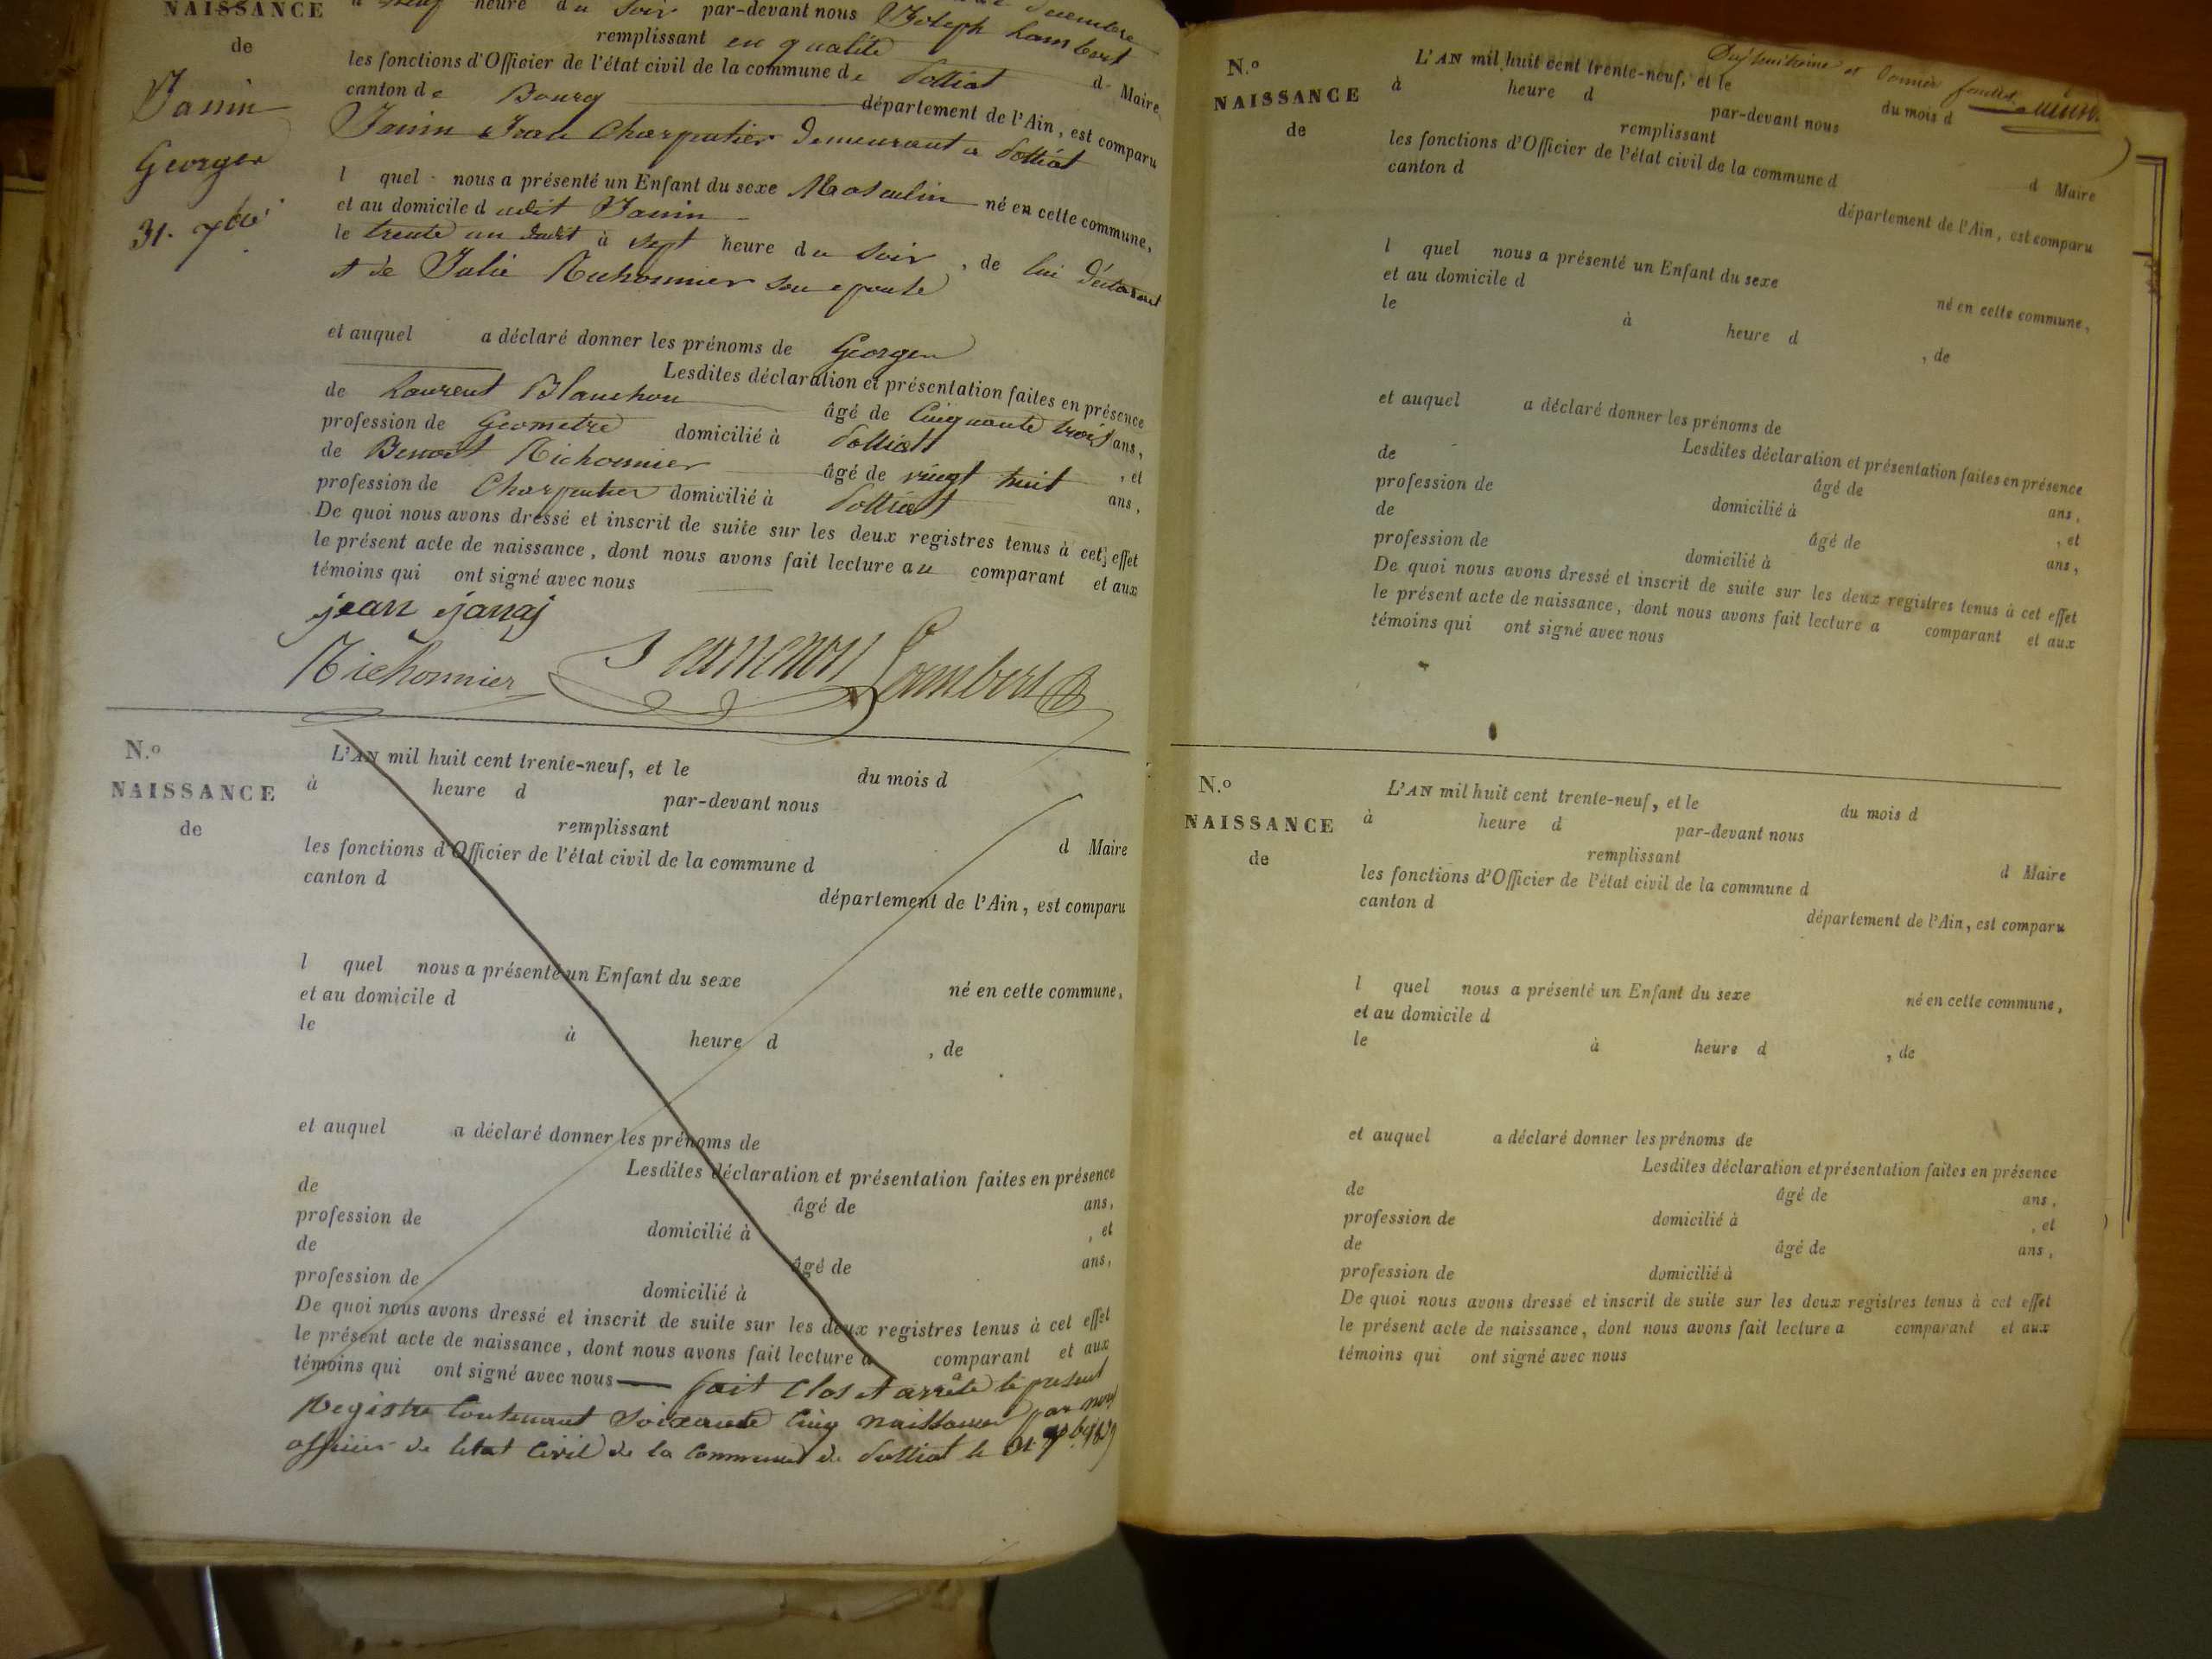 NAISSANCE
de
Janin
Georges
31. Xbre
heure du soir par-devant nous Joseph Lambert
remplissant en qualité d Maire
les fonctions d'Officier de l'état civil de la commune de Polliat
canton de Bourg département de l'Ain, est comparu
Janin Jean Charpentier demeurant a Polliat
l quel nous a présenté un Enfant du sexe Masculin né en cette commune,
et au domicile dudit Janin
le trente un dudit à sept heure du soir, de lui déclarant
et de Julie Nichonnier son epouse
et auquel a déclaré donner les prénoms de Georges
Lesdites déclaration et présentation faites en présence
de Laurent Blanchon âgé de Cinquante trois ans,
profession de Geometre domicilié à Polliat , et
de Benoit Nichonnier âgé de vingt huit ans,
profession de Charpentier domicilié à Polliat
De quoi nous avons dressé et inscrit de suite sur les deux registres tenus à cet effet
le présent acte de naissance, dont nous avons fait lecture au comparant et aux
témoins qui ont signé avec nous
jean
Nichonnier Lambert
N.o
NAISSANCE
de
L'AN mil huit cent trente-neuf, et le du mois d
à heure d par-devant nous
remplissant d Maire
les fonctions d'Officier de l'état civil de la commune d
canton d département de l'Ain, est comparu
l quel nous a présenté un Enfant du sexe né en cette commune,
et au domicile d
le à heure d , de
et auquel a déclaré donner les prénoms de
Lesdites déclaration et présentation faites en présence
de âgé de ans,
profession de domicilié à , et
de âgé de ans,
profession de domicilié à
De quoi nous avons dressé et inscrit de suite sur les deux registres tenus à cet effet
le présent acte de naissance, dont nous avons fait lecture a comparant et aux
témoins qui ont signé avec nous fait Clos et arrêté le present
Registre Contenant Soixante Cinq naissances par nous
officier de letat Civil de la Commune de Polliat le 31
N.o
NAISSANCE
de
L'AN mil huit cent trente-neuf, et le du mois d
à heure d par-devant nous
remplissant d Maire
les fonctions d'Officier de l'état civil de la commune d
canton d département de l'Ain, est comparu
l quel nous a présenté un Enfant du sexe né en cette commune,
et au domicile d
le à heure d , de
et auquel a déclaré donner les prénoms de
Lesdites déclaration et présentation faites en présence
de âgé de ans,
profession de domicilié à , et
de âgé de ans,
profession de domicilié à
De quoi nous avons dressé et inscrit de suite sur les deux registres tenus à cet effet
le présent acte de naissance, dont nous avons fait lecture a comparant et aux
témoins qui ont signé avec nous
N.o
NAISSANCE
de
L'AN mil huit cent trente-neuf, et le du mois d
à heure d par-devant nous
remplissant d Maire
les fonctions d'Officier de l'état civil de la commune d
canton d département de l'Ain, est comparu
l quel nous a présenté un Enfant du sexe né en cette commune,
et au domicile d
le à heure d , de
et auquel a déclaré donner les prénoms de
Lesdites déclaration et présentation faites en présence
de âgé de ans,
profession de domicilié à , et
de âgé de ans,
profession de domicilié à
De quoi nous avons dressé et inscrit de suite sur les deux registres tenus à cet effet
le présent acte de naissance, dont nous avons fait lecture a comparant et aux
témoins qui ont signé avec nous